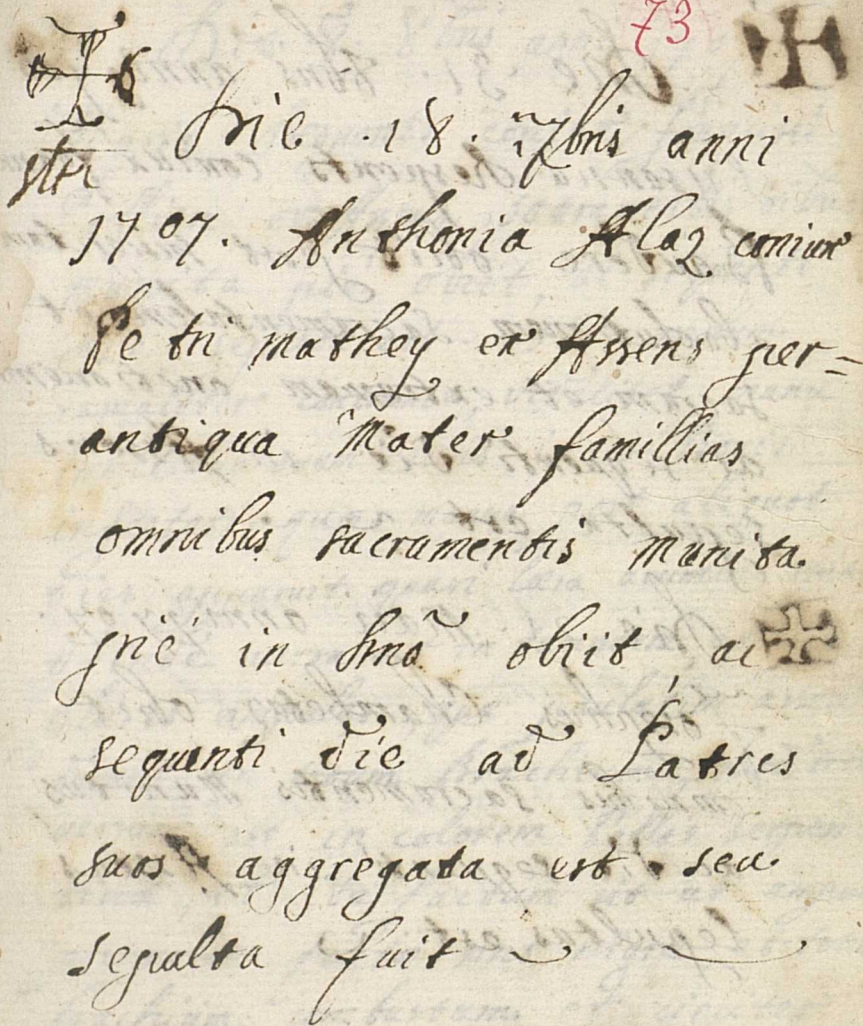 73
Die .18. 7bris anni
1707. Anthonia Alaz coniux
Petri mathey ex Assens per=
antiqua Mater famillias
omnibus sacramentis munita
pie in Dno obiit ac
sequenti die ad Patres
suos aggregata est seu
sepulta fuit